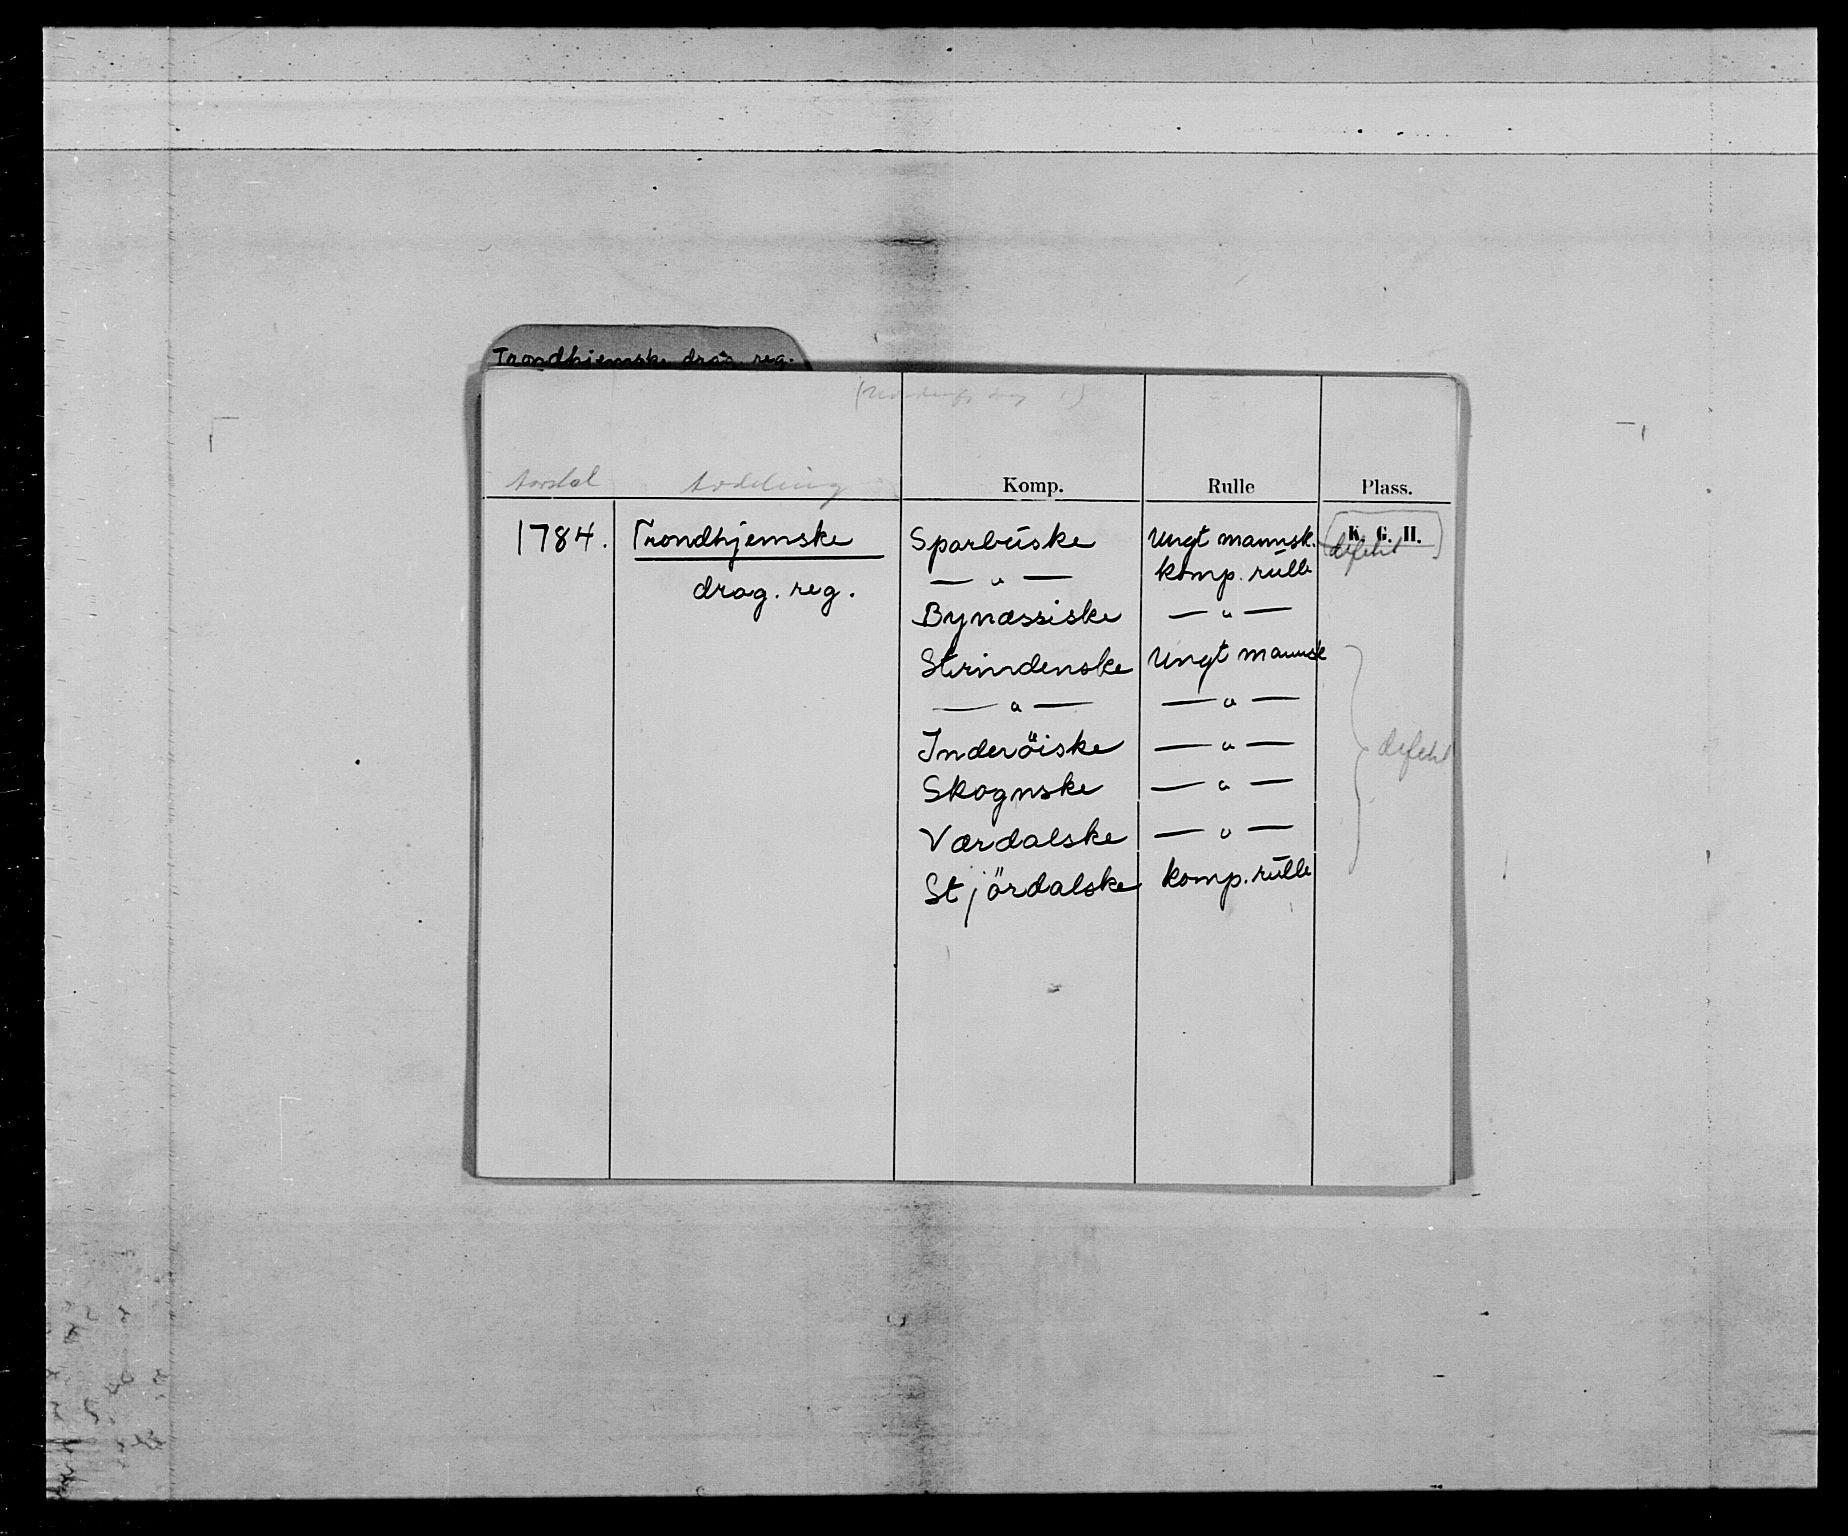 Trondhjemske drag. reg.
Aarstal Avdeling Komp. Rulle Plass.
1784. Trondhjemske Sparbuske Ungt mannsk. K. G. H. defekt
drag. reg. — " — komp. rulle
Bynæssiske — " —
Strindenske Ungt mannsk
— " — — " — defekt
Inderöiske — " —
Skognske — " —
Værdalske — " —
Stjördalske komp. rulle